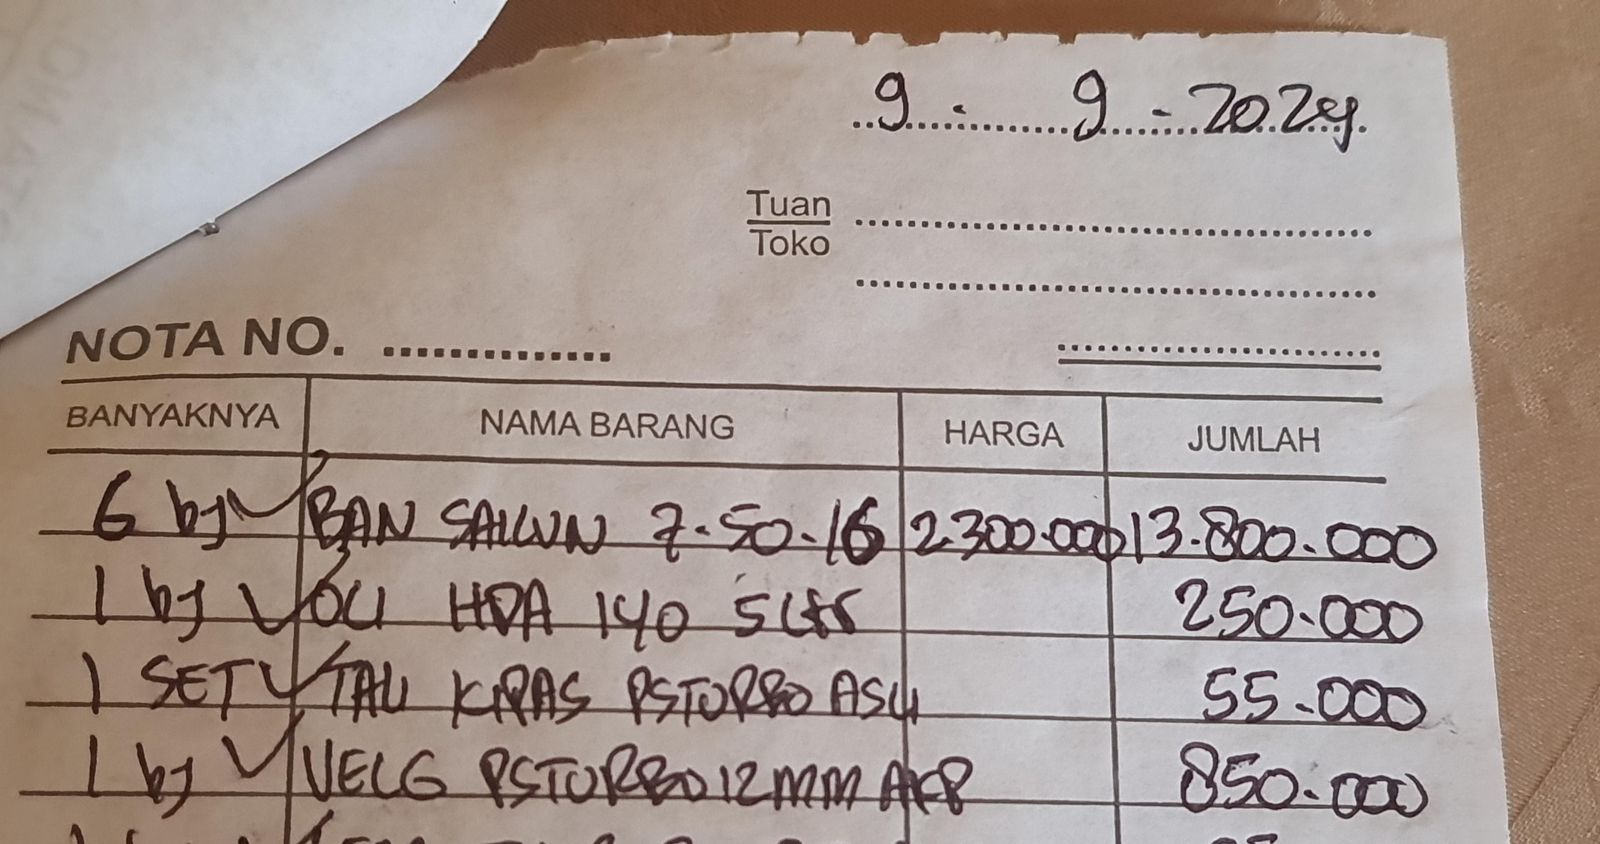 9 - 9 - 2024
Tuan
Toko
NOTA NO.
BANYAKNYA NAMA BARANG HARGA JUMLAH
6 bj BAN SAILUN 7.50.16 2.300.000 13.800.000
1 bj OLI HDA 140 5 Ltr 250.000
1 SET TALI KIPAS PSTURBO ASLI 55.000
1 bj VELG PSTURBO 12MM 850.000